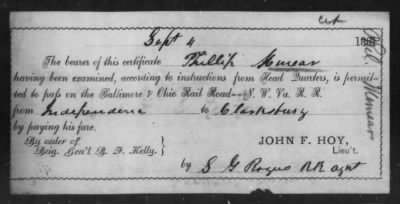 Sept 4 1861
The bearer of this certificate Phillip Minear
having been examined, according to instructions from Head Quarters, is permit-
ted to pass on the Baltimore & Ohio Rail Road--N. W. Va. R. R.
from Independence to Clarksburg
by paying his fare.
By order of
Brig. Gen'l B. F. Kelly. }
JOHN F. HOY,
Lieu't.
by S G Rogers RR agnt
Minear